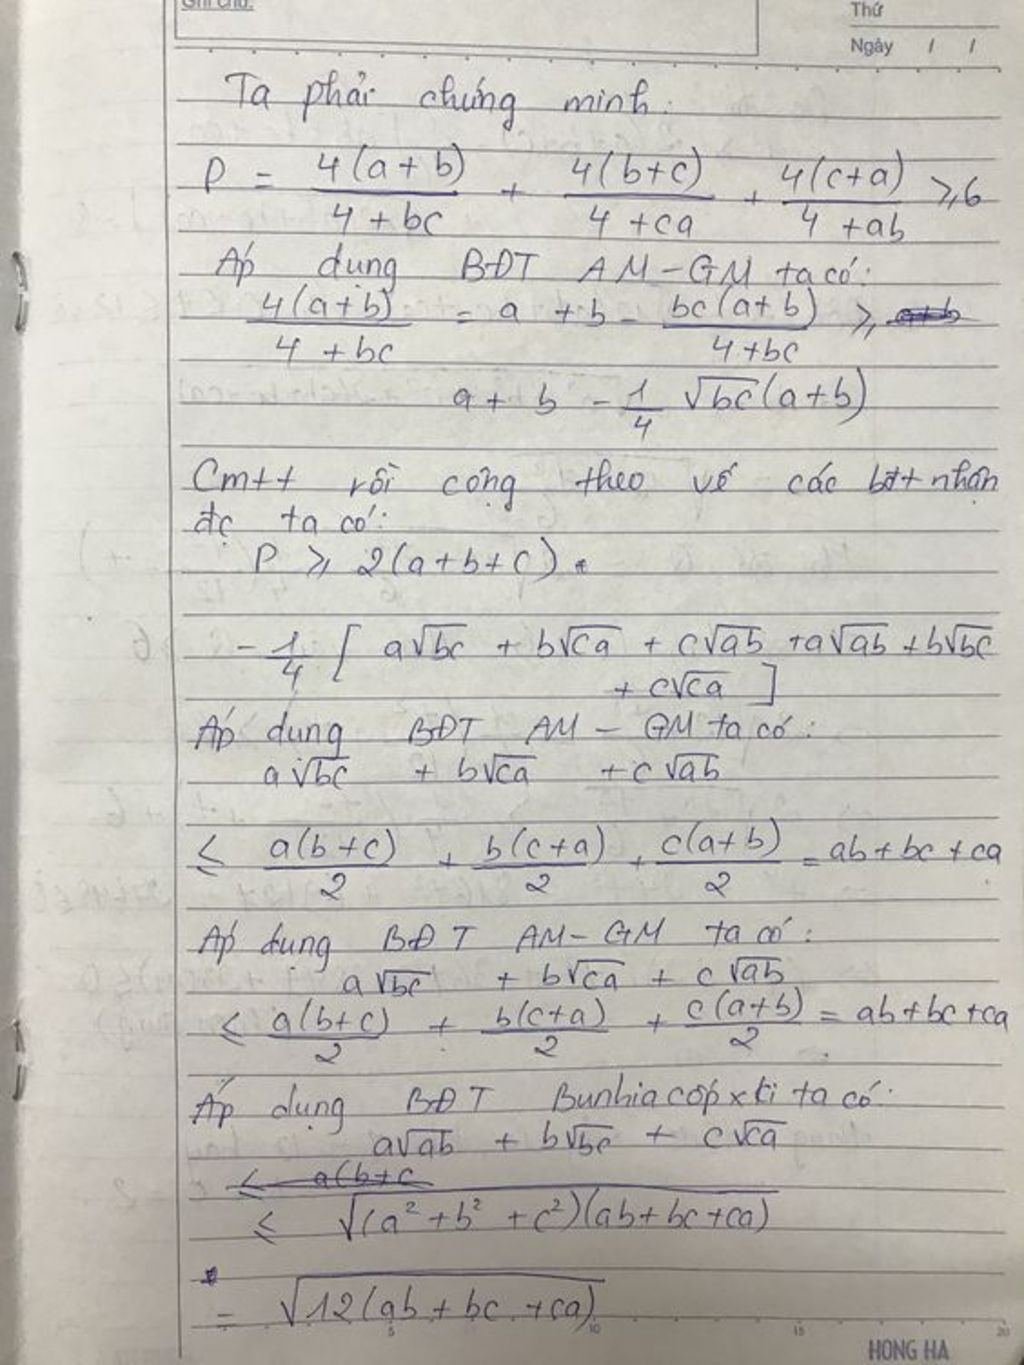 Ghi chú:
Thứ
Ngày / /
Ta phải chứng minh:
P = 4(a+b)/(4+bc) + 4(b+c)/(4+ca) + 4(c+a)/(4+ab) ⩾ 6
Áp dụng BĐT AM-GM ta có:
4(a+b)/(4+bc) = a+b - bc(a+b)/(4+bc) ⩾
a + b - 1/4 √bc(a+b)
Cmtt rồi cộng theo vế các bđt nhận
đc ta có:
P ⩾ 2(a+b+c)
- 1/4 [ a√bc + b√ca + c√ab + a√ab + b√bc
+ c√ca ]
Áp dụng BĐT AM - GM ta có:
a√bc + b√ca + c√ab
≤ a(b+c)/2 + b(c+a)/2 + c(a+b)/2 = ab+bc+ca
Áp dụng BĐT AM-GM ta có:
a√bc + b√ca + c√ab
≤ a(b+c)/2 + b(c+a)/2 + c(a+b)/2 = ab+bc+ca
Áp dụng BĐT Bunhiacốpxki ta có:
a√ab + b√bc + c√ca
≤ a(b+c
≤ √(a²+b²+c²)(ab+bc+ca)
= √12(ab+bc+ca)
5 10 15 20
HONG HA